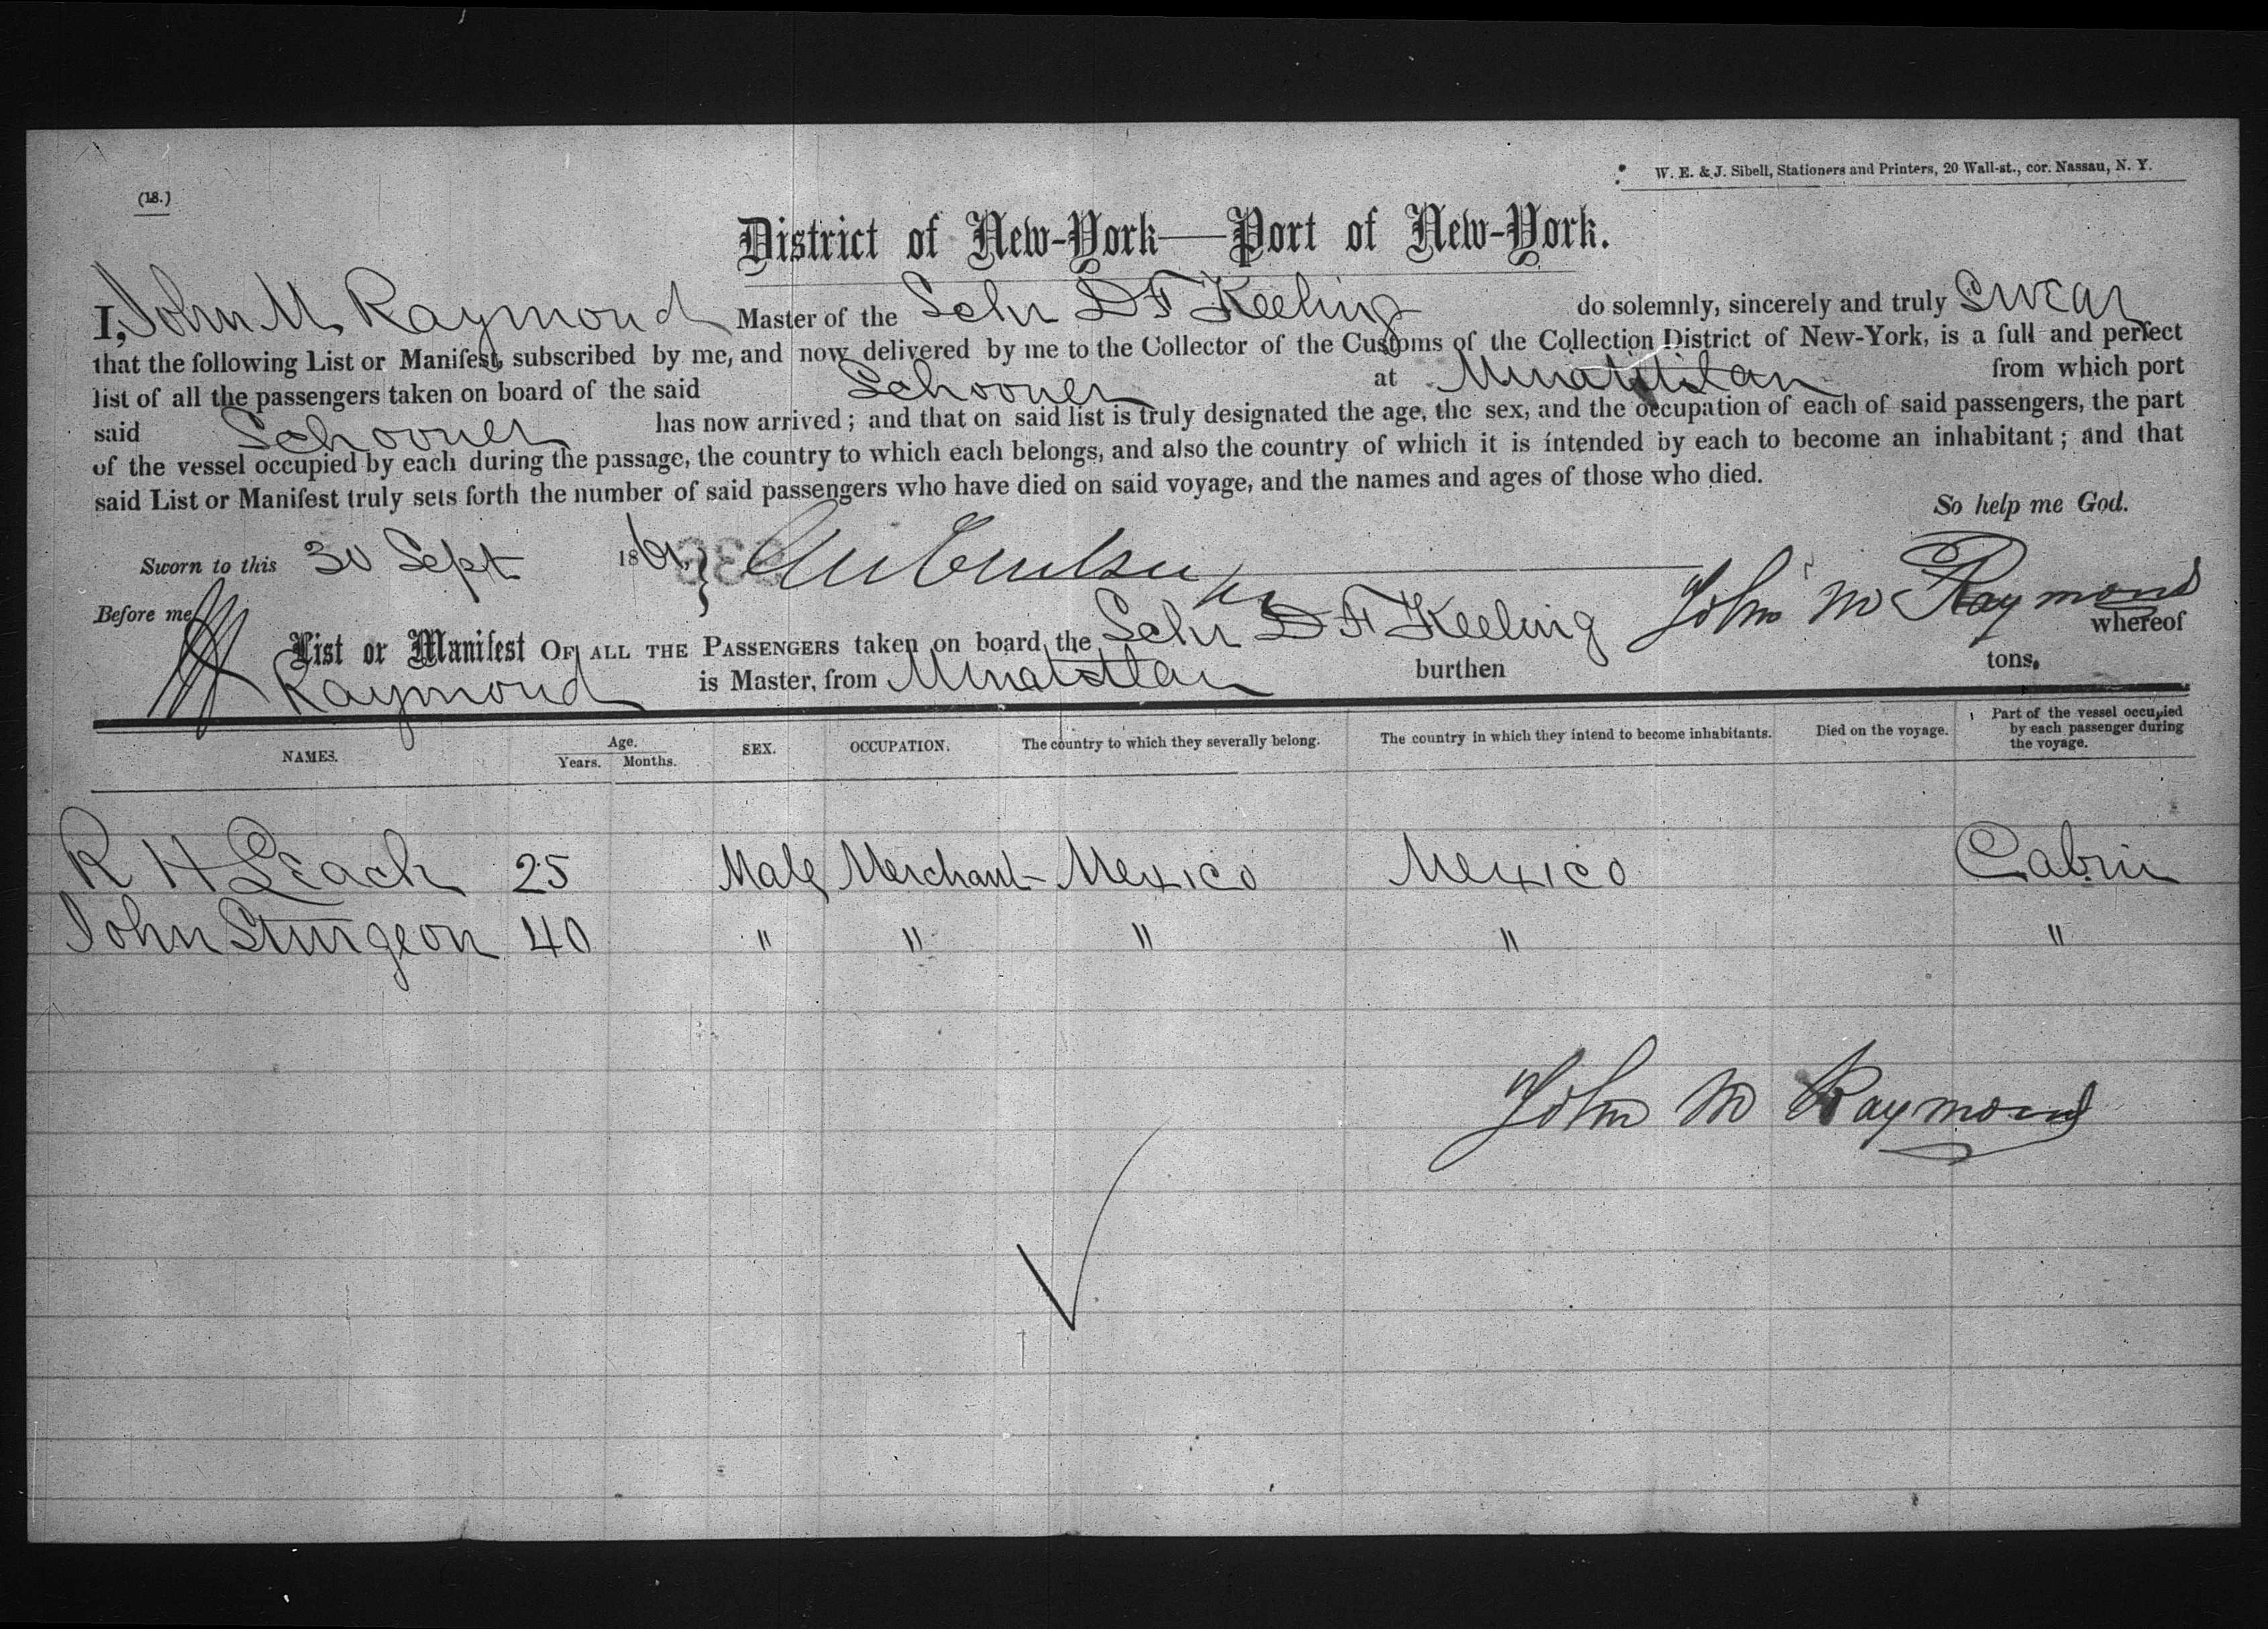 (18.)
W. E. & J. Sibell, Stationers and Printers, 20 Wall-st., cor. Nassau, N. Y.
District of New-York—Port of New-York.
I, John M Raymond Master of the Schr D F Keeling do solemnly, sincerely and truly swear
that the following List or Manifest, subscribed by me, and now delivered by me to the Collector of the Customs of the Collection District of New-York, is a full and perfect
list of all the passengers taken on board of the said Schooner at Minatitlan from which port
said Schooner has now arrived; and that on said list is truly designated the age, the sex, and the occupation of each of said passengers, the part
of the vessel occupied by each during the passage, the country to which each belongs, and also the country of which it is intended by each to become an inhabitant; and that
said List or Manifest truly sets forth the number of said passengers who have died on said voyage, and the names and ages of those who died.
So help me God.
Sworn to this 30 Sept 1861,
John M Raymond
Before me
List or Manifest OF ALL THE PASSENGERS taken on board the Schr D F Keeling whereof
Raymond is Master, from Minatitlan burthen tons.
NAMES. Age. Years. Months. SEX. OCCUPATION. The country to which they severally belong. The country in which they intend to become inhabitants. Died on the voyage. Part of the vessel occupied by each passenger during the voyage.
R H Leach 25 Male Merchant Mexico Mexico Cabin
John Sturgeon 40 " " " " "
John M Raymond